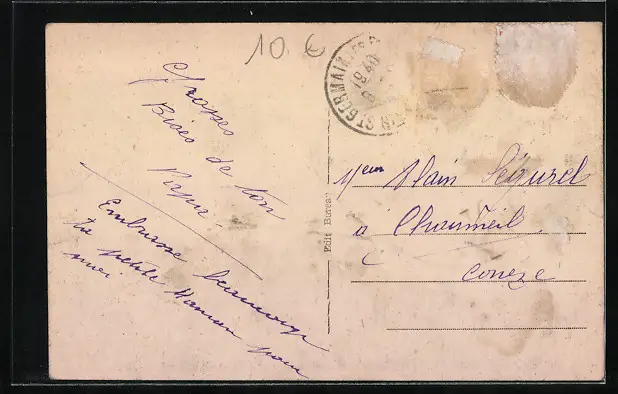 10 €
Grosses
Bises de ton
Papa.
Embrasse beaucoup
ta petite Maman pour
moi.
ST GERMAIN
1940
Edit Bureau
Alain Ségurel
à Chaumeil
Corrèze